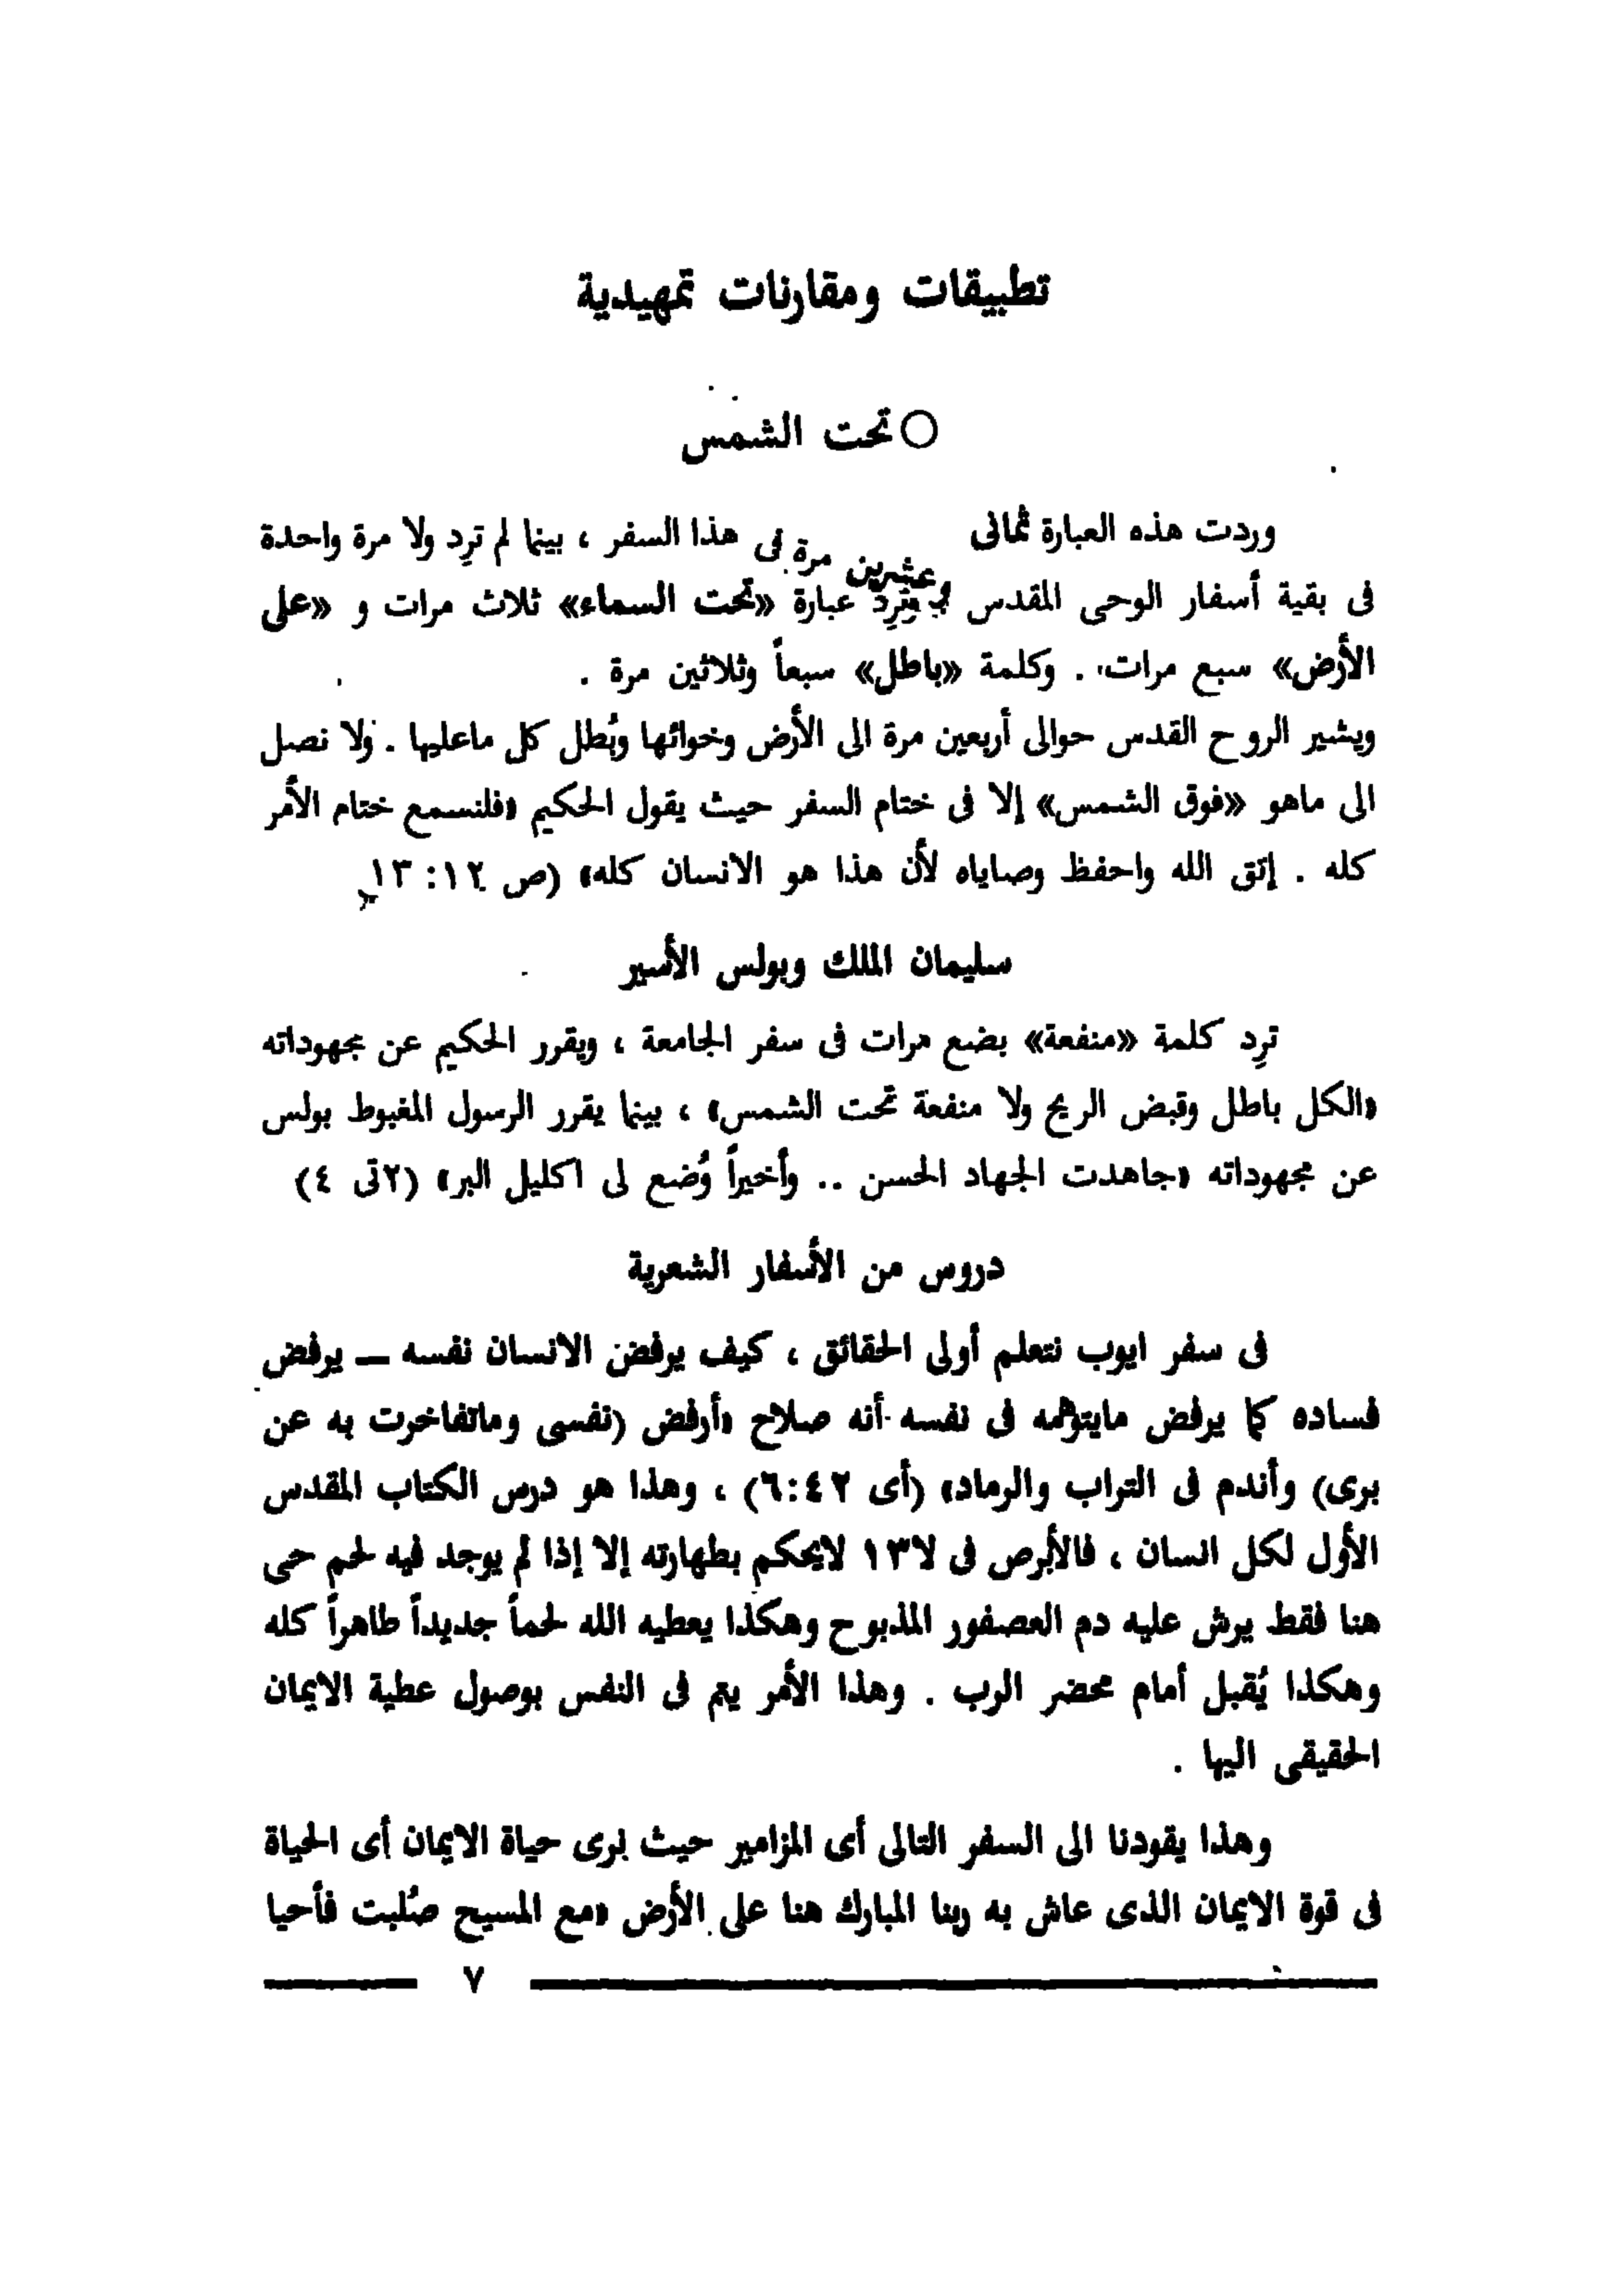 تطبيقات ومقارنات تمهيدية
○ تحت الشمس
وردت هذه العبارة ثمانى وعشرين مرة فى هذا السفر ، بينما لم ترِد ولا مرة واحدة
فى بقية أسفار الوحى المقدس وترِد عبارة «تحت السماء» ثلاث مرات و «على
الأرض» سبع مرات . وكلمة «باطل» سبعاً وثلاثين مرة .
ويشير الروح القدس حوالى أربعين مرة الى الأرض وخوائها وبُطل كل ماعليها . ولا نصل
الى ماهو «فوق الشمس» إلا فى ختام السفر حيث يقول الحكيم «فلنسمع ختام الأمر
كله . إتق الله واحفظ وصاياه لأن هذا هو الانسان كله» (ص ١٢: ١٣)
سليمان الملك وبولس الأسير
ترِد كلمة «منفعة» بضع مرات فى سفر الجامعة ، ويقرر الحكيم عن مجهوداته
«الكل باطل وقبض الريح ولا منفعة تحت الشمس» ، بينما يقرر الرسول المغبوط بولس
عن مجهوداته «جاهدت الجهاد الحسن .. وأخيراً وُضع لى اكليل البر» (٢تى ٤)
دروس من الأسفار الشعرية
فى سفر ايوب نتعلم أولى الحقائق ، كيف يرفض الانسان نفسه — يرفض
فساده كما يرفض مايتوهمه فى نفسه أنه صلاح «أرفض (نفسى وماتفاخرت به عن
برى) وأندم فى التراب والرماد» (أى ٤٢:٦) ، وهذا هو درس الكتاب المقدس
الأول لكل انسان ، فالأبرص فى لا١٣ لايحكم بطهارته إلا إذا لم يوجد فيه لحم حى
هنا فقط يرش عليه دم العصفور المذبوح وهكذا يعطيه الله لحماً جديداً طاهراً كله
وهكذا يُقبل أمام محضر الرب . وهذا الأمر يتم فى النفس بوصول عطية الايمان
الحقيقى اليها .
وهذا يقودنا الى السفر التالى أى المزامير حيث نرى حياة الايمان أى الحياة
فى قوة الايمان الذى عاش به ربنا المبارك هنا على الأرض «مع المسيح صُلبت فأحيا
٧